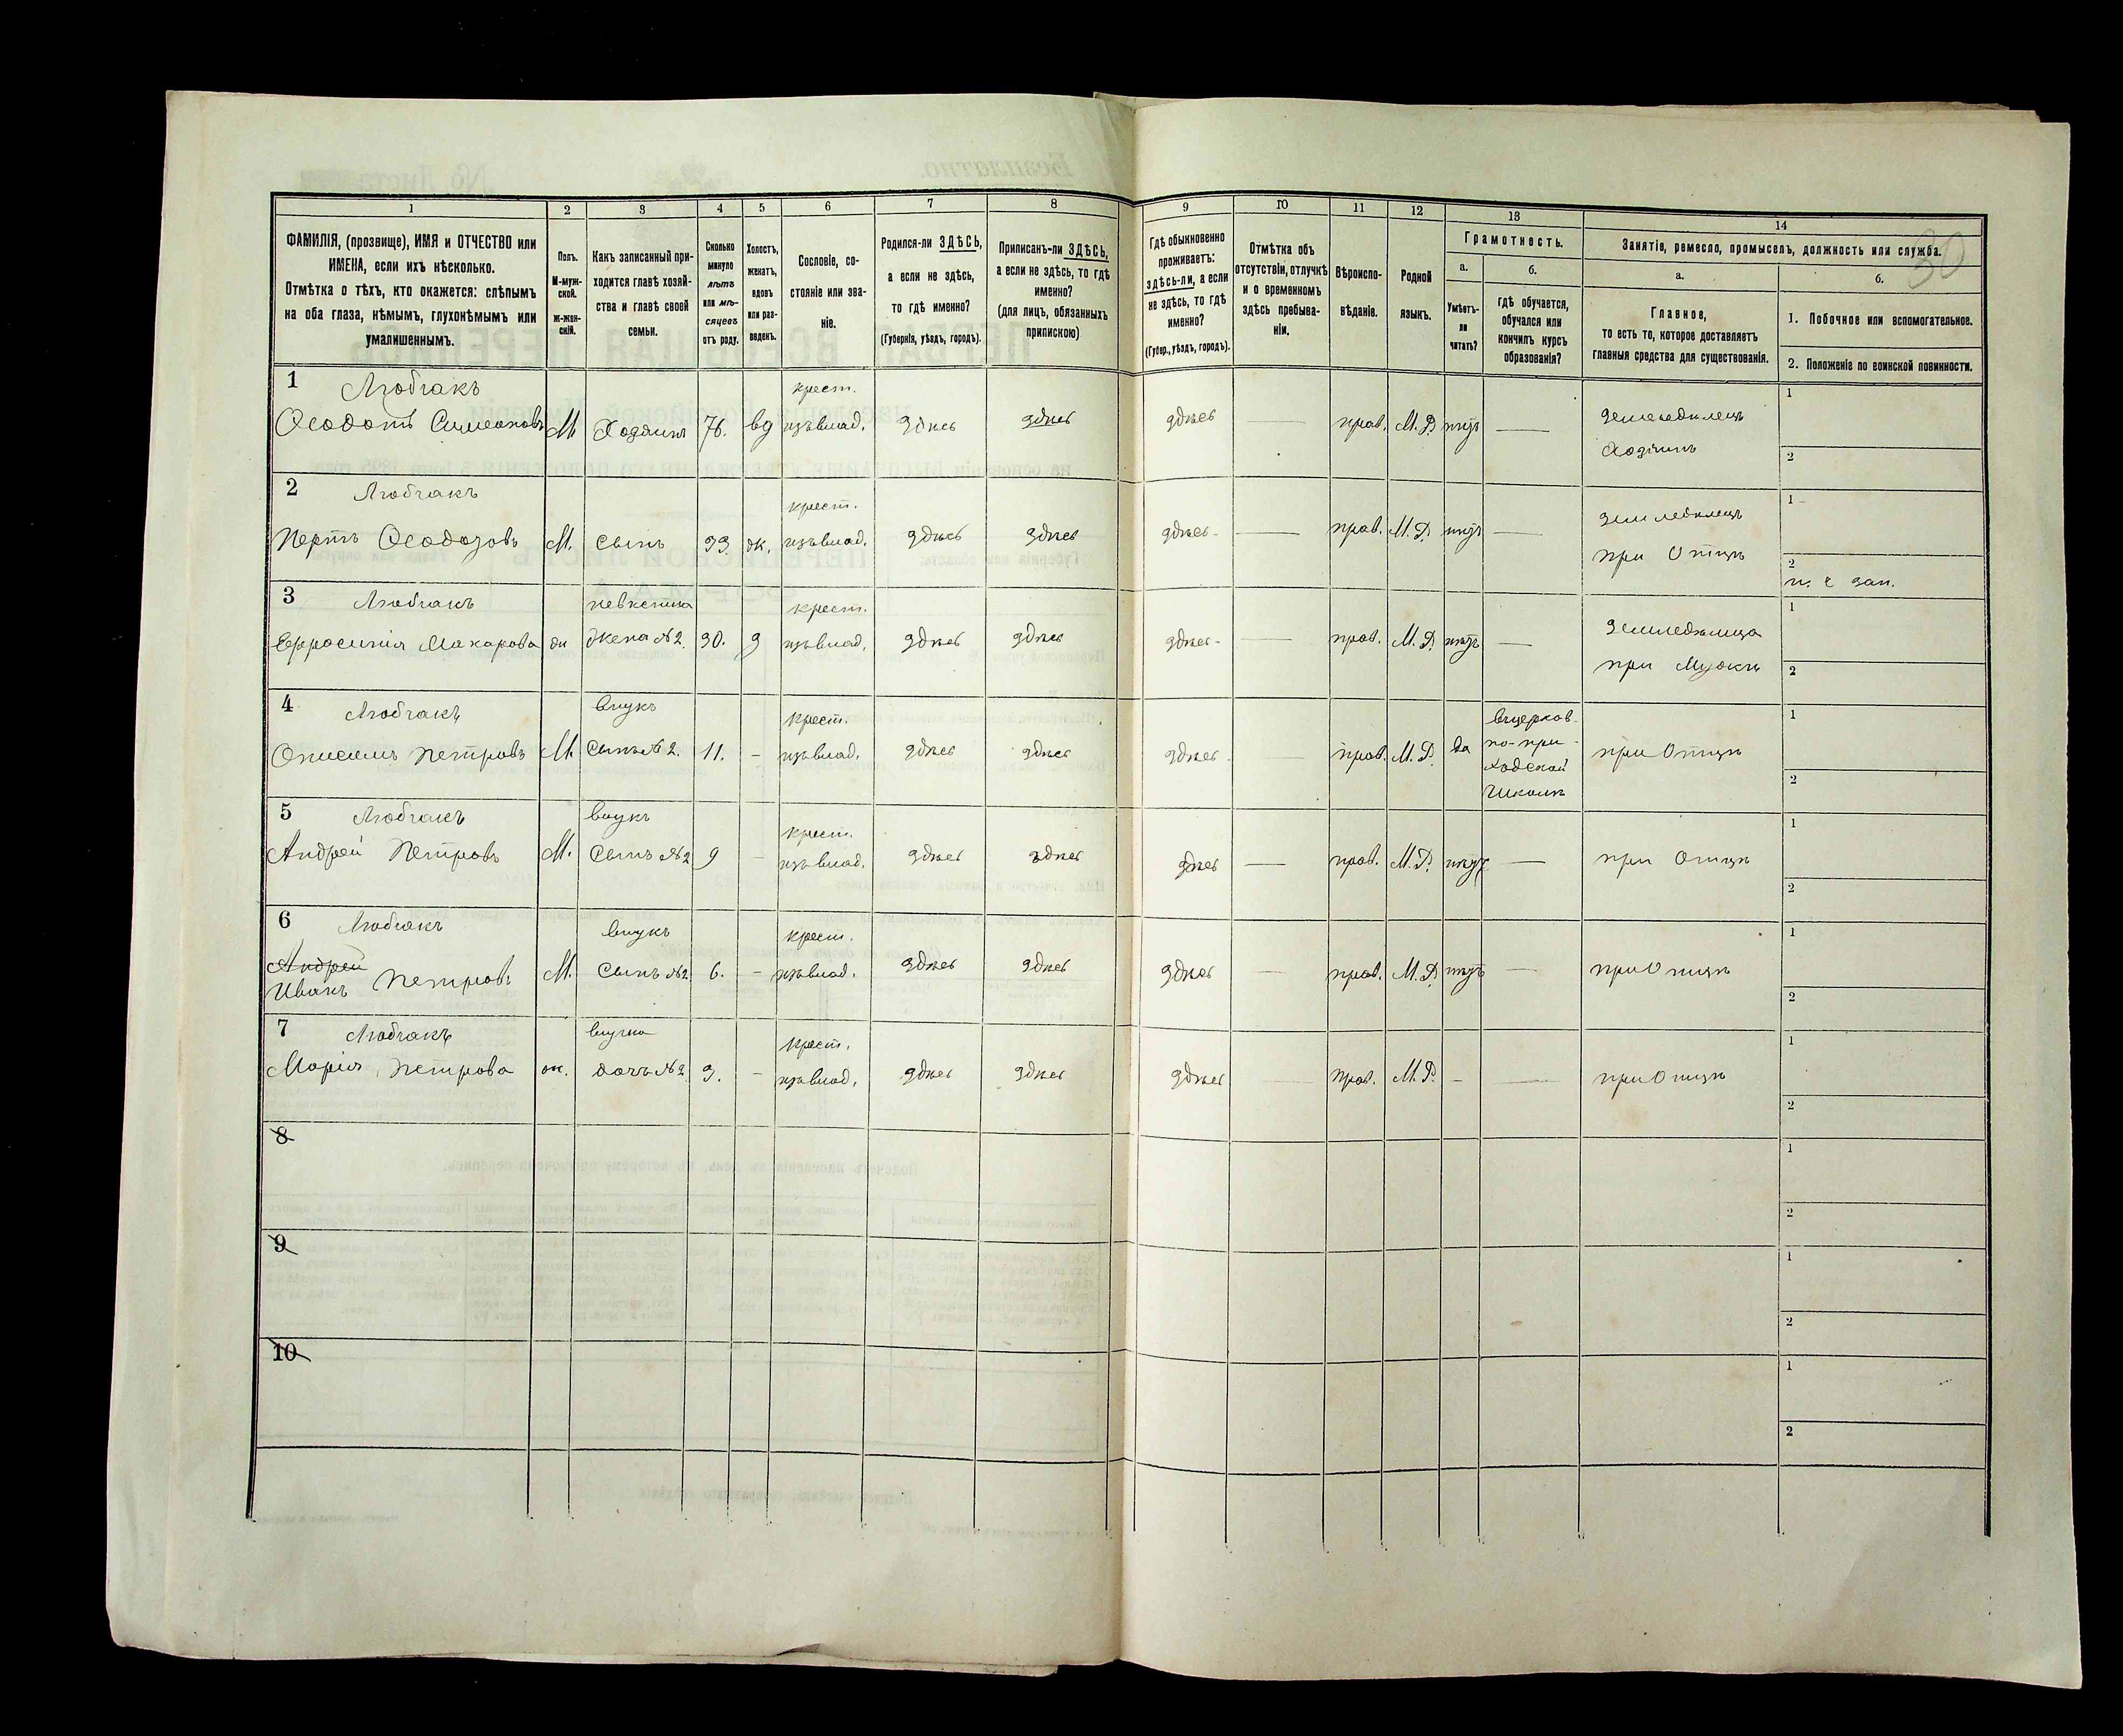 30
1
2
3
4
5
6
7
8
9
10
11
12
13
14
ФАМИЛІЯ, (прозвище), ИМЯ и ОТЧЕСТВО или
ИМЕНА, если ихъ нѣсколько.
Отмѣтка о тѣхъ, кто окажется: слѣпымъ
на оба глаза, нѣмымъ, глухонѣмымъ или
умалишеннымъ.
Полъ.
М-муж-
ской.
Ж-жен-
скій.
Какъ записанный при-
ходится главѣ хозяй-
ства и главѣ своей
семьи.
Сколько
минуло
лѣтъ
или мѣ-
сяцевъ
отъ роду.
Холостъ,
женатъ,
вдовъ
или раз-
веденъ.
Сословіе, со-
стояніе или зва-
ніе.
Родился-ли ЗДѢСЬ,
а если не здѣсь,
то гдѣ именно?
(Губернія, уѣздъ, городъ).
Приписанъ-ли ЗДѢСЬ,
а если не здѣсь, то гдѣ
именно?
(для лицъ, обязанныхъ
припискою)
Гдѣ обыкновенно
проживаетъ:
здѣсь-ли, а если
не здѣсь, то гдѣ
именно?
(Губер., уѣздъ, городъ).
Отмѣтка объ
отсутствіи, отлучкѣ
и о временномъ
здѣсь пребыва-
ніи.
Вѣроиспо-
вѣданіе.
Родной
языкъ.
Грамотность.
а.
Умѣетъ-
ли
читать?
б.
гдѣ обучается,
обучался или
кончилъ курсъ
образованія?
Занятіе, ремесло, промыселъ, должность или служба.
а.
Главное,
то есть то, которое доставляетъ
главныя средства для существованія.
б.
1. Побочное или вспомогательное.
2. Положеніе по воинской повинности.
1 Любчакъ
крест.
Ѳеодотъ Симеоновъ М. Хозяинъ 76. вд изъ влад. здѣсь здѣсь здѣсь — прав. М. Р. нѣтъ — Земледѣлецъ
Хозяинъ
1
2
2 Любчакъ
крест.
Петръ Ѳеодотовъ М. сынъ 33. ж. изъ влад. здѣсь здѣсь здѣсь — прав. М. Р. нѣтъ — земледѣлецъ
при Отцѣ
1
2
3 Любчакъ невѣстка крест.
Ефросинія Макарова ж жена №2. 30. з изъ влад. здѣсь здѣсь здѣсь — прав. М. Р. нѣтъ — земледѣлица
при Мужѣ
1
2
4 Любчакъ внукъ крест.
Онисимъ Петровъ М. Сынъ №2. 11. - изъ влад. здѣсь здѣсь здѣсь — прав. М. Р. да
въ церков-
но-при-
ходской
школѣ
при Отцѣ
1
2
5 Любчакъ внукъ крест.
Андрей Петровъ М. Сынъ №2 9 - изъ влад. здѣсь здѣсь здѣсь — прав. М. Р. нѣтъ — при Отцѣ
1
2
6 Любчакъ внукъ крест.
Андрей
Иванъ Петровъ М. Сынъ №2. 6. - изъ влад. здѣсь здѣсь здѣсь — прав. М. Р. нѣтъ — при Отцѣ
1
2
7 Любчакъ внучка крест.
Марія Петрова ж. дочь №2. 3. - изъ влад. здѣсь здѣсь здѣсь — прав. М. Р. - — при Отцѣ
1
2
8
1
2
9
1
2
10
1
2